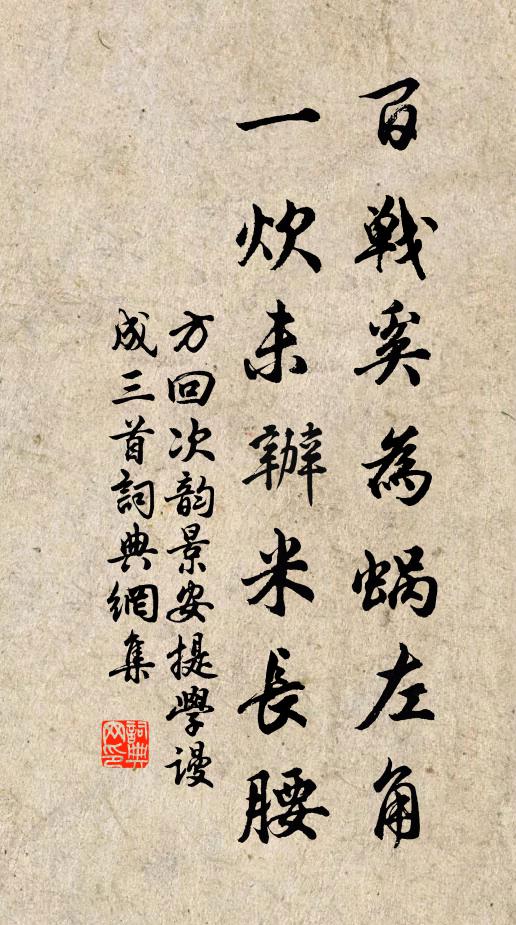 百戰奚為蝸左角
一炊未辦米長腰
方回次韵景安提學謾
成三首詞典網集
詞典
网印